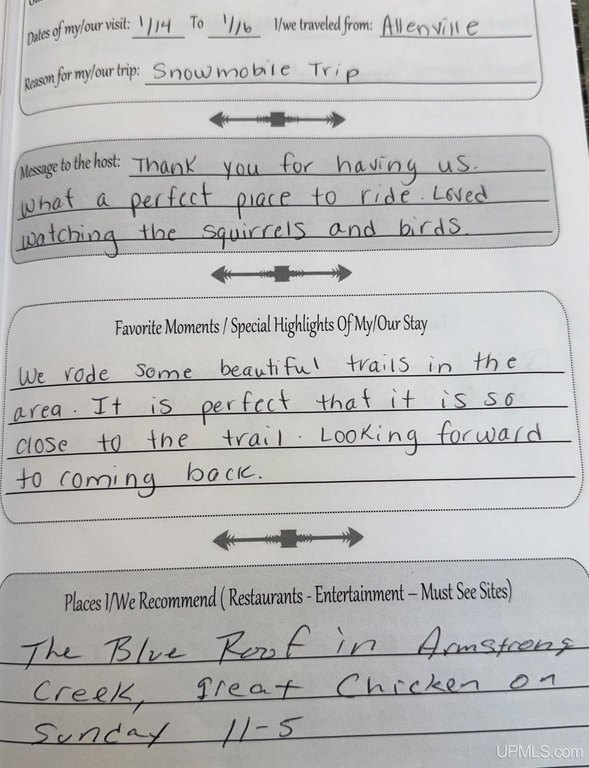 Dates of my/our visit: 1/14 To 1/16 I/we traveled from: Allenville
Reason for my/our trip: Snowmobile Trip
Message to the host: Thank you for having us.
What a perfect place to ride. Loved
watching the squirrels and birds.
Favorite Moments / Special Highlights Of My/Our Stay
We rode some beautiful trails in the
area. It is perfect that it is so
close to the trail. Looking forward
to coming back.
Places I/We Recommend ( Restaurants - Entertainment – Must See Sites)
The Blue Roof in Armstrong
Creek, great Chicken on
Sunday 11-5
UPMLS.com